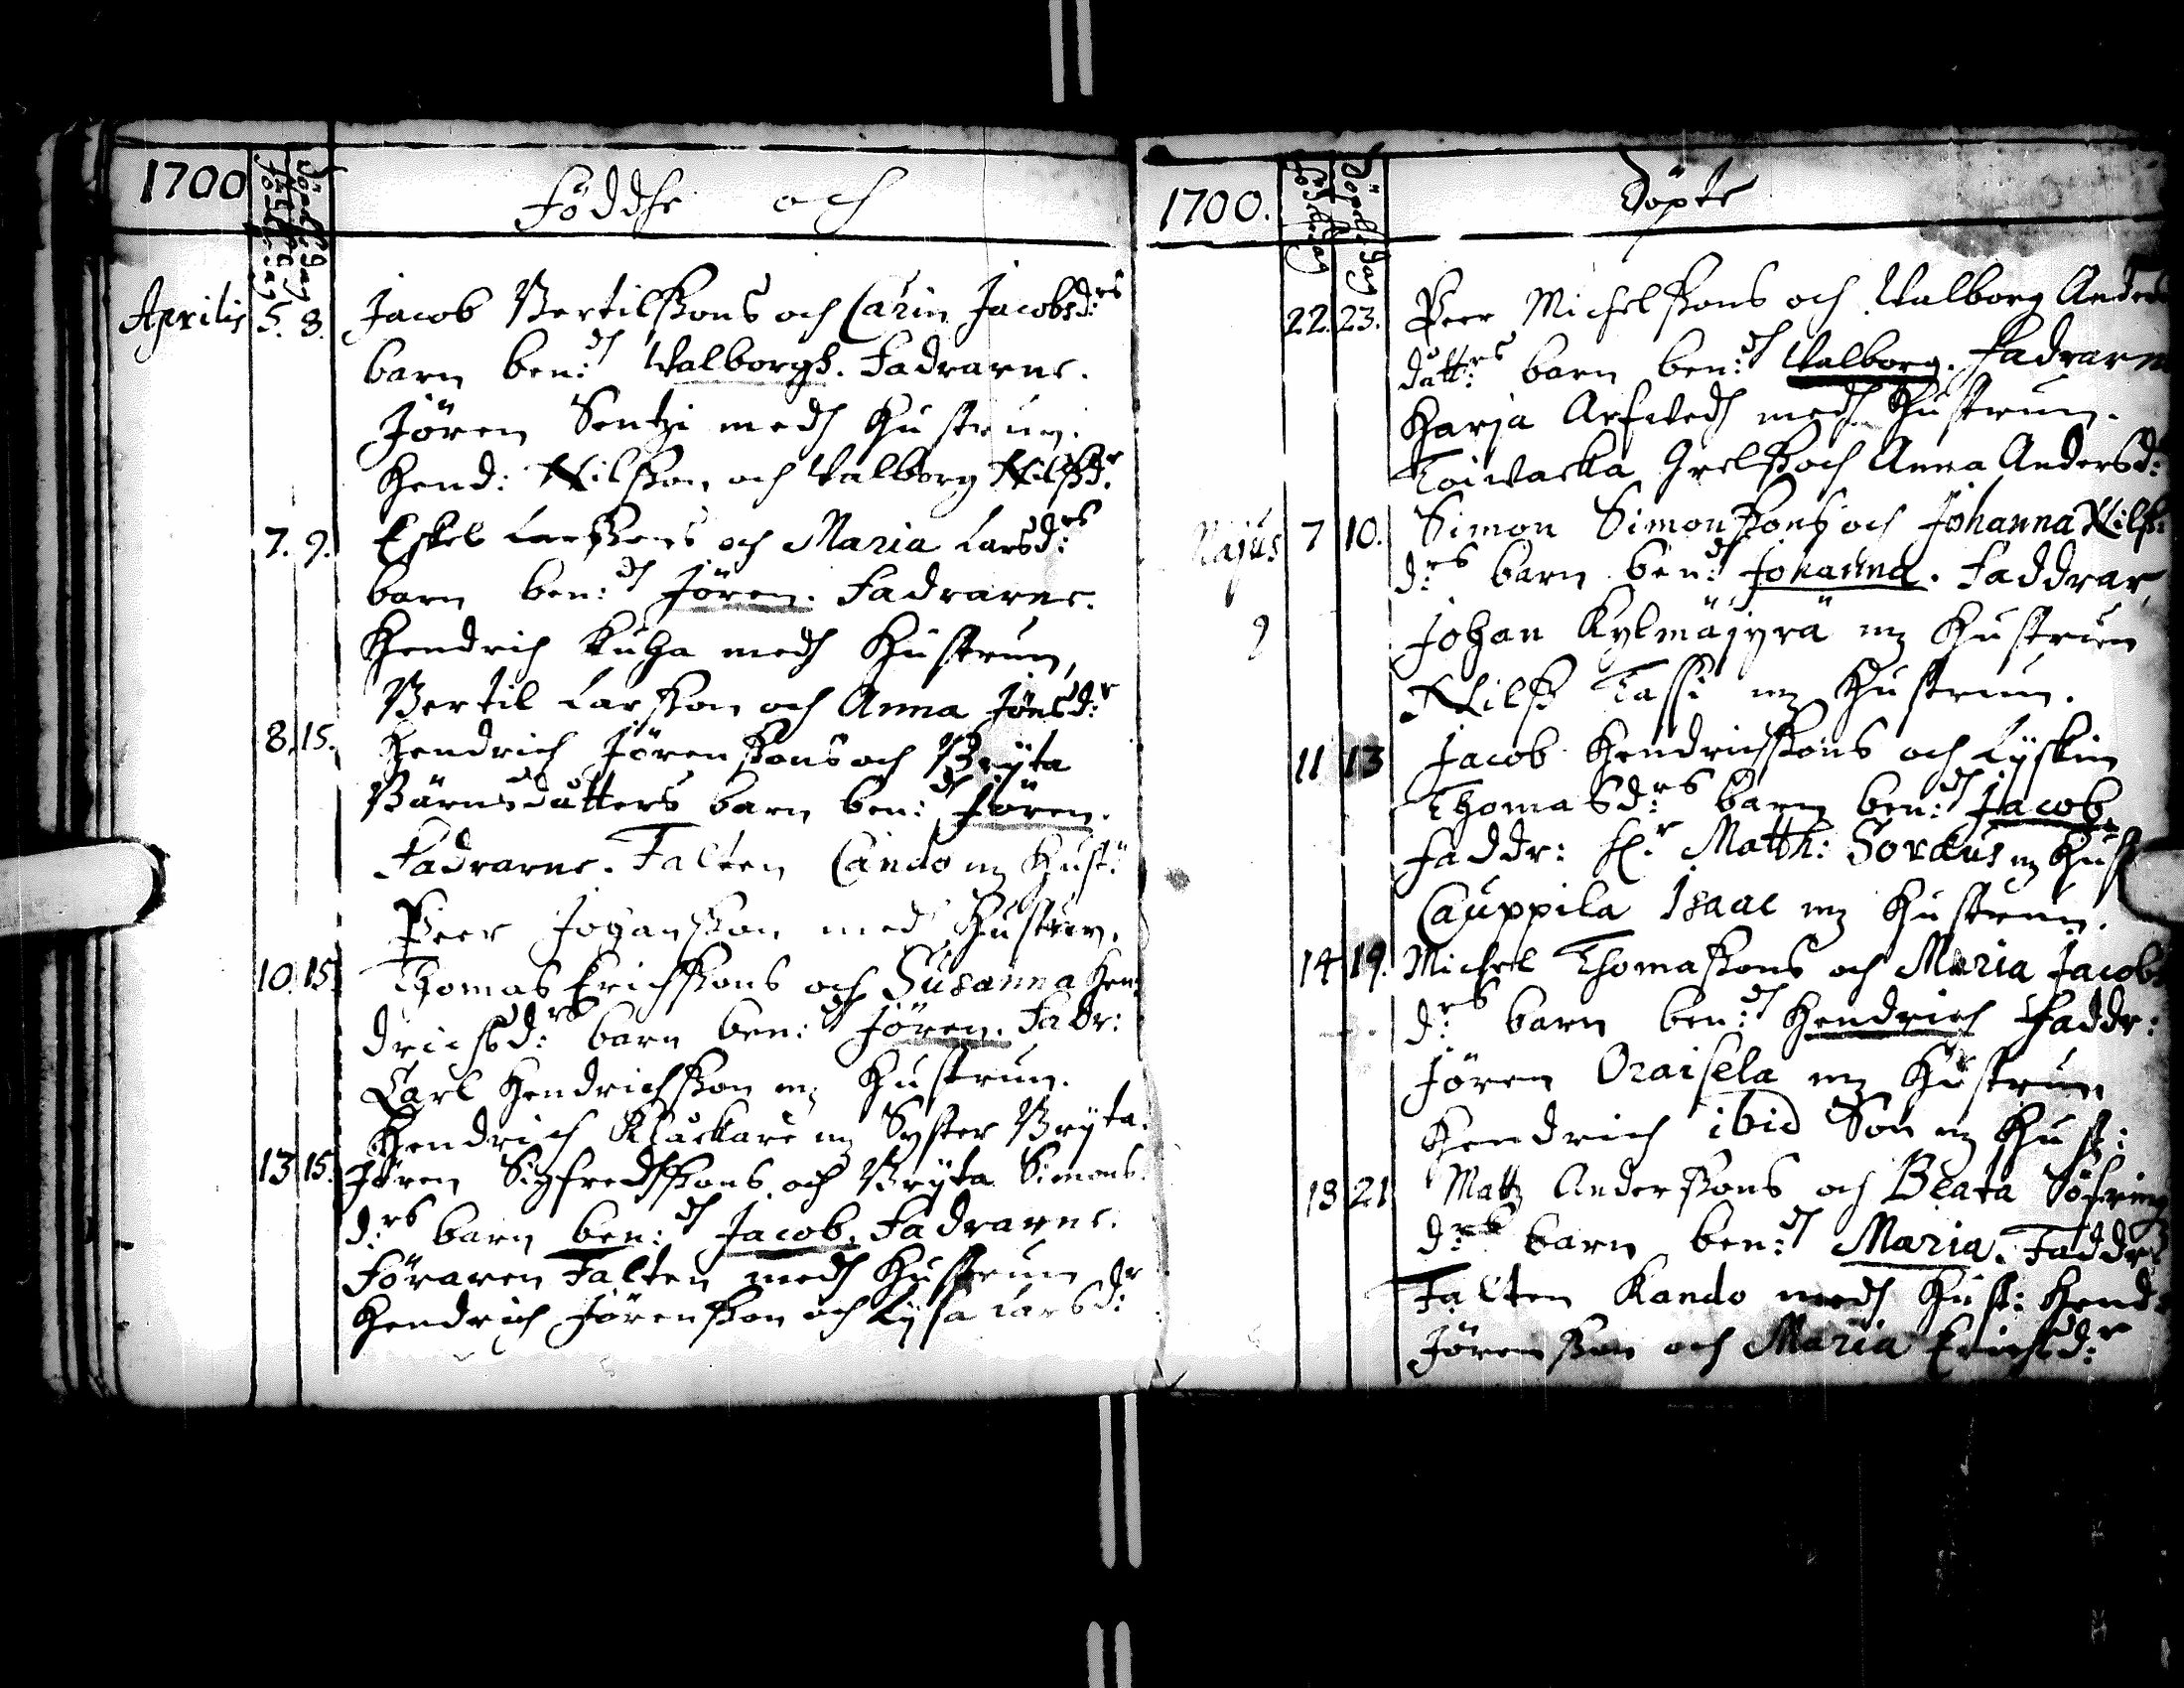 1700
Födelsedag
Döpelsedag
Födde och
Aprilis 5. 8. Jacob Bertilßons och Carin Jacobsd:rs
barn ben:dh Valborgh. Fadrarne.
Jören Sentzi medh Hustrun.
Hend: Nilßon och Valborg Nilßd:r
7. 9. Eskel Larßons och Maria Larsd:rs
barn ben:dh Jören. Fadrarne.
Hendrich Kuha medh Hustrun,
Bertil Larßon och Anna Jönsd:r
8. 15. Hendrich Jörenßons och Bryta
Bärnsdätters barn ben:dh Jören.
Fadrarne. Falten Cando m Hust:
Peer Johanßon med Hustrun.
10. 15. Thomas Erichßons och Susanna Hen-
drichsd:rs barn ben:dh Jören. Fadr:
Carl Hendrichßon m Hustrun.
Hendrich Kläckare m Syster Bryta.
13 15. Jören Sigfredhßons och Bryta Simons.
d:rs barn ben:dh Jacob. Fadrarne.
Föraren Falten medh Hustrun
Hendrich Jörenßon och Lysa Larsd:r
1700.
Födelsedag
Döpelsedag
Döpte
22. 23. Peer Michelßons och Valborg Anders
dått:rs barn ben:dh Valborg. Fadrarn
Harja Arfvedh medh Hustrun.
Toivacka Grelß och Anna Andersd:
Majus 7 10. Simon Simonßons och Johanna Nilß:
d:rs barn ben:dh Johanna. Faddrar,
Johan Kylmäjyrä m Hustrun
Nilß Tassi m Hustrun.
11 13 Jacob Hendrichßons och Lyskin
Thomasd:rs barn ben:dh Jacob.
Faddr: H:r Matth: Sorkus m Hust
Cauppila Isaac m Hustrun.
14 19. Michel Thomaßons och Maria Jacobs
d:rs barn ben:dh Hendrich Faddr:
Jören Oraisela m Hustrun
Hendrich ibid Son m Hust:
18 21 Matz Anderßons och Beata Söfring
d:rs barn ben:dh Maria. Faddr
Falten Kando medh Hust: Hend
Jörenßon och Maria Erichsd:r